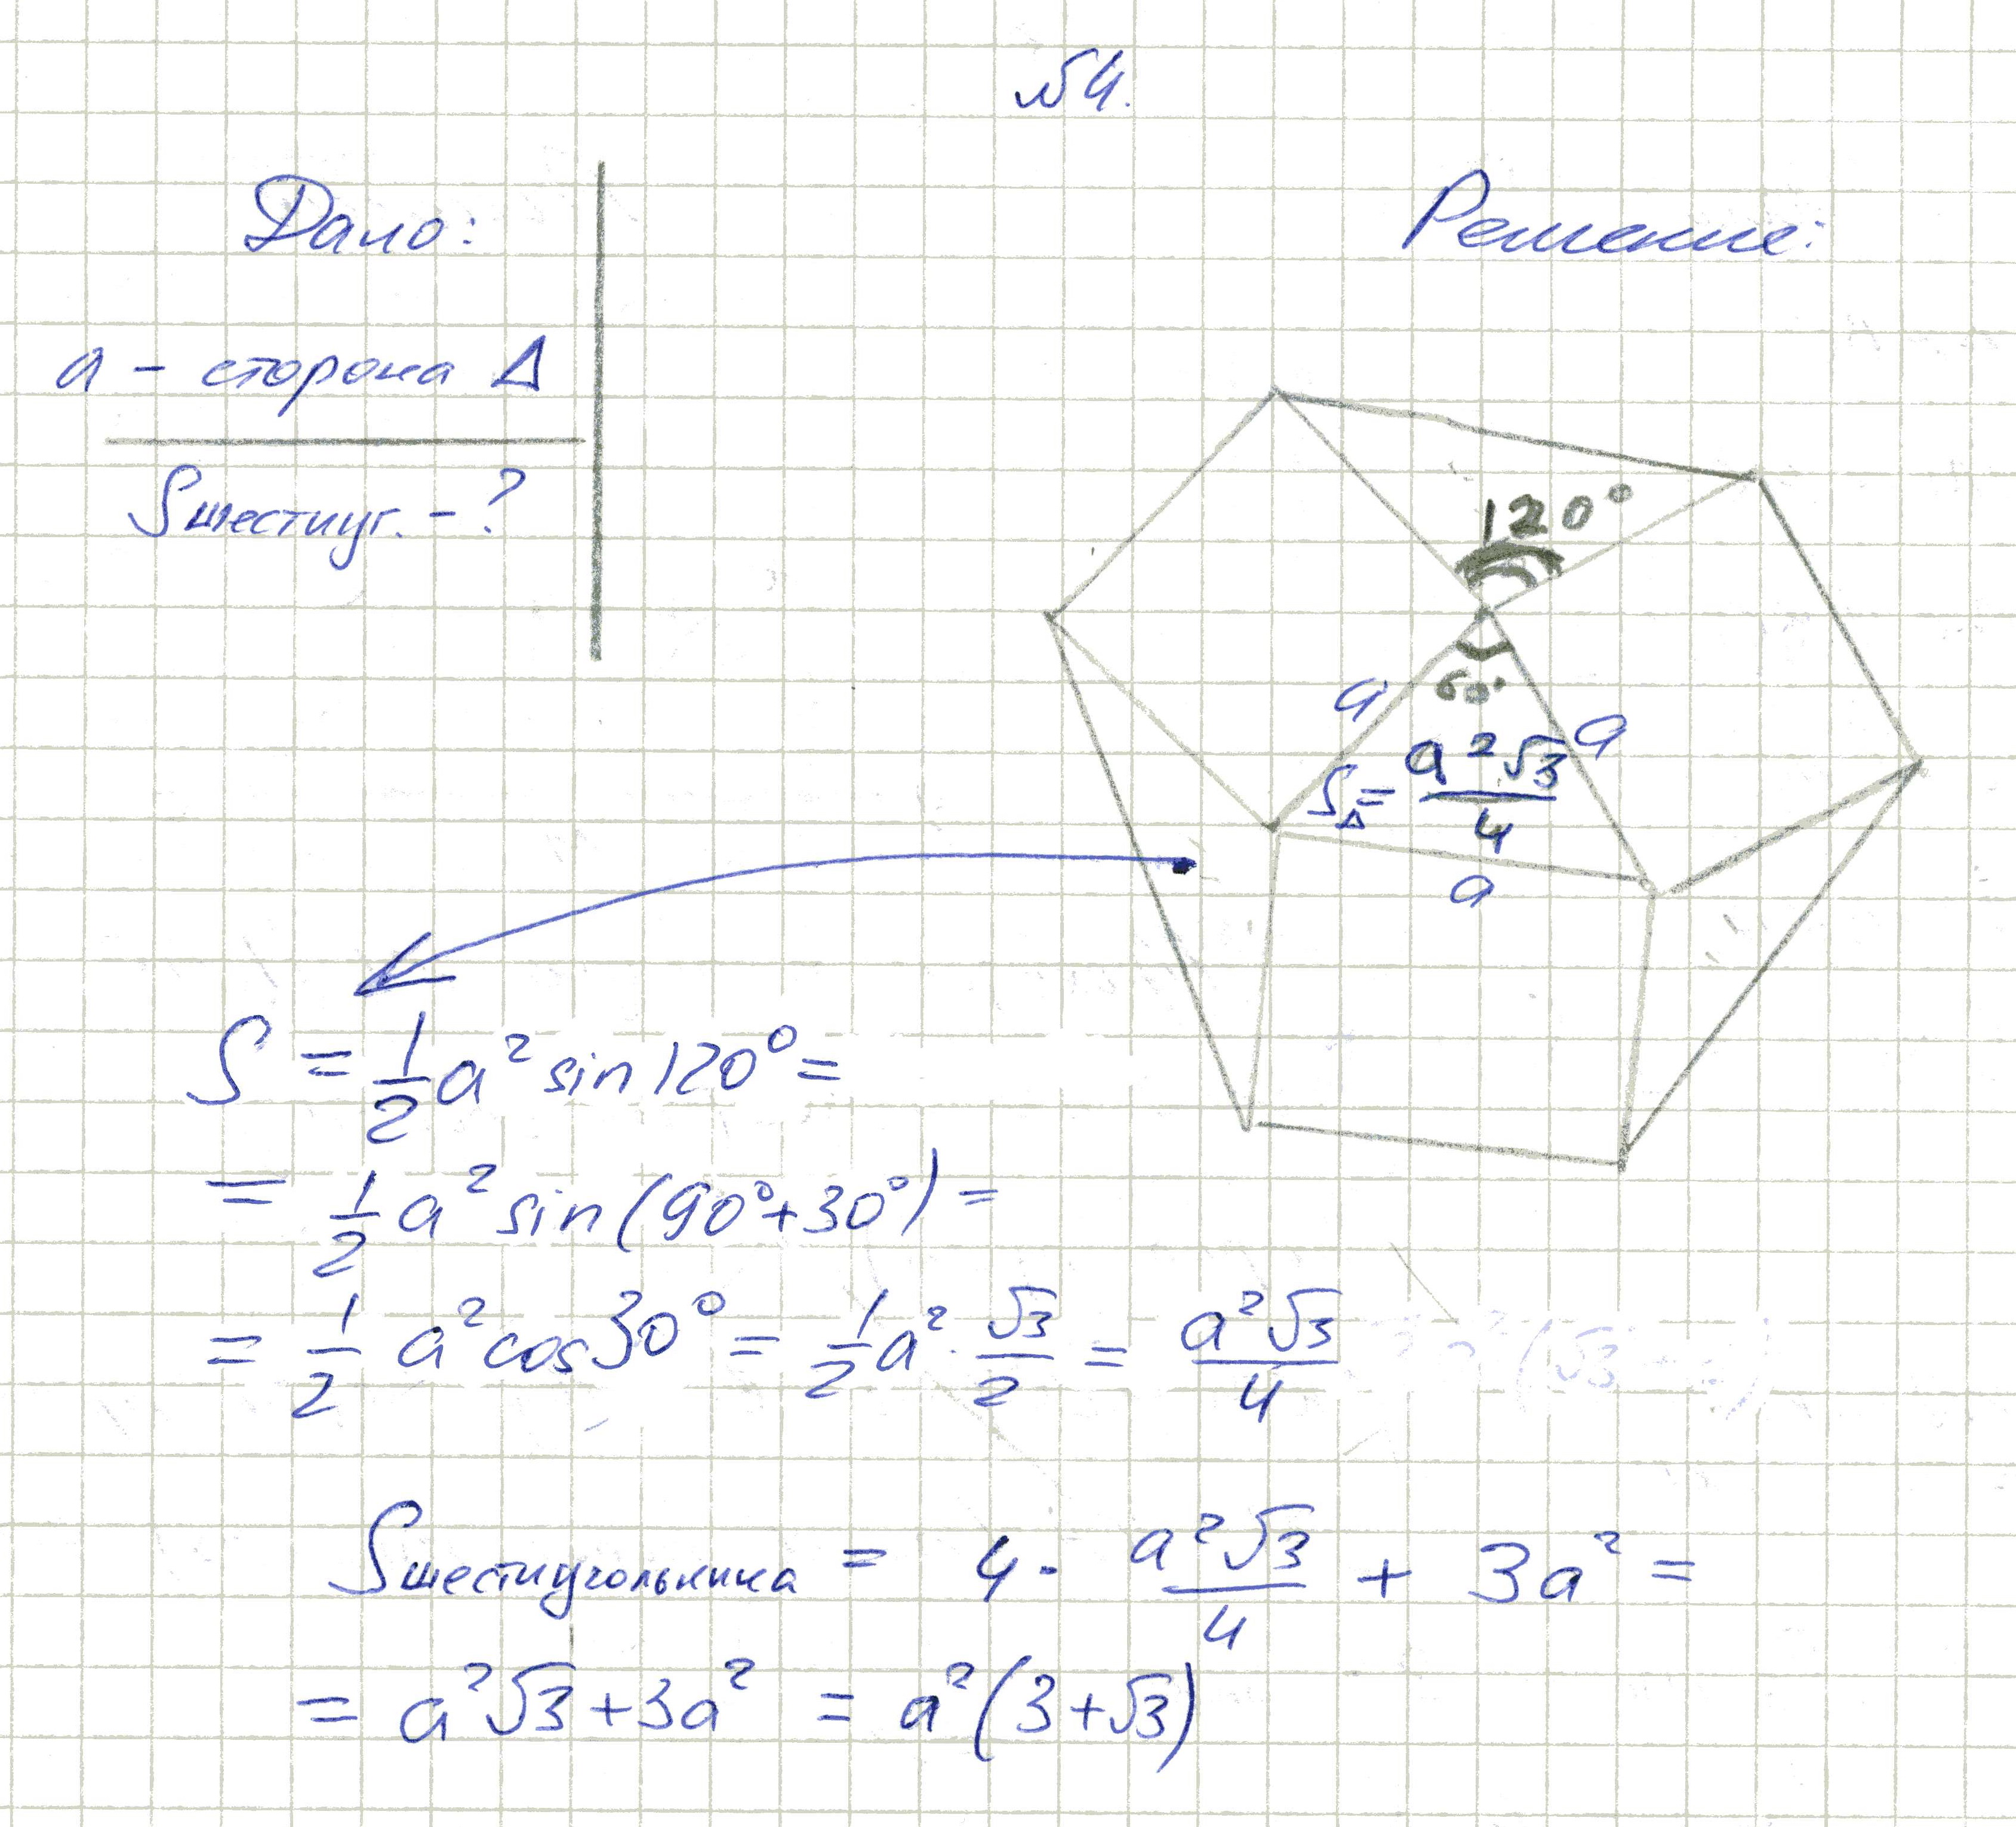 №4.
Дано:
Решение:
a - сторона Δ
Sшестиуг. - ?
120°
60°
a
a
S△ = a²√3/4
a
S = 1/2 a² sin 120° =
= 1/2 a² sin(90°+30°) =
= 1/2 a² cos 30° = 1/2 a² · √3/2 = a²√3/4
Sшестиугольника = 4 · a²√3/4 + 3a² =
= a²√3 + 3a² = a²(3+√3)